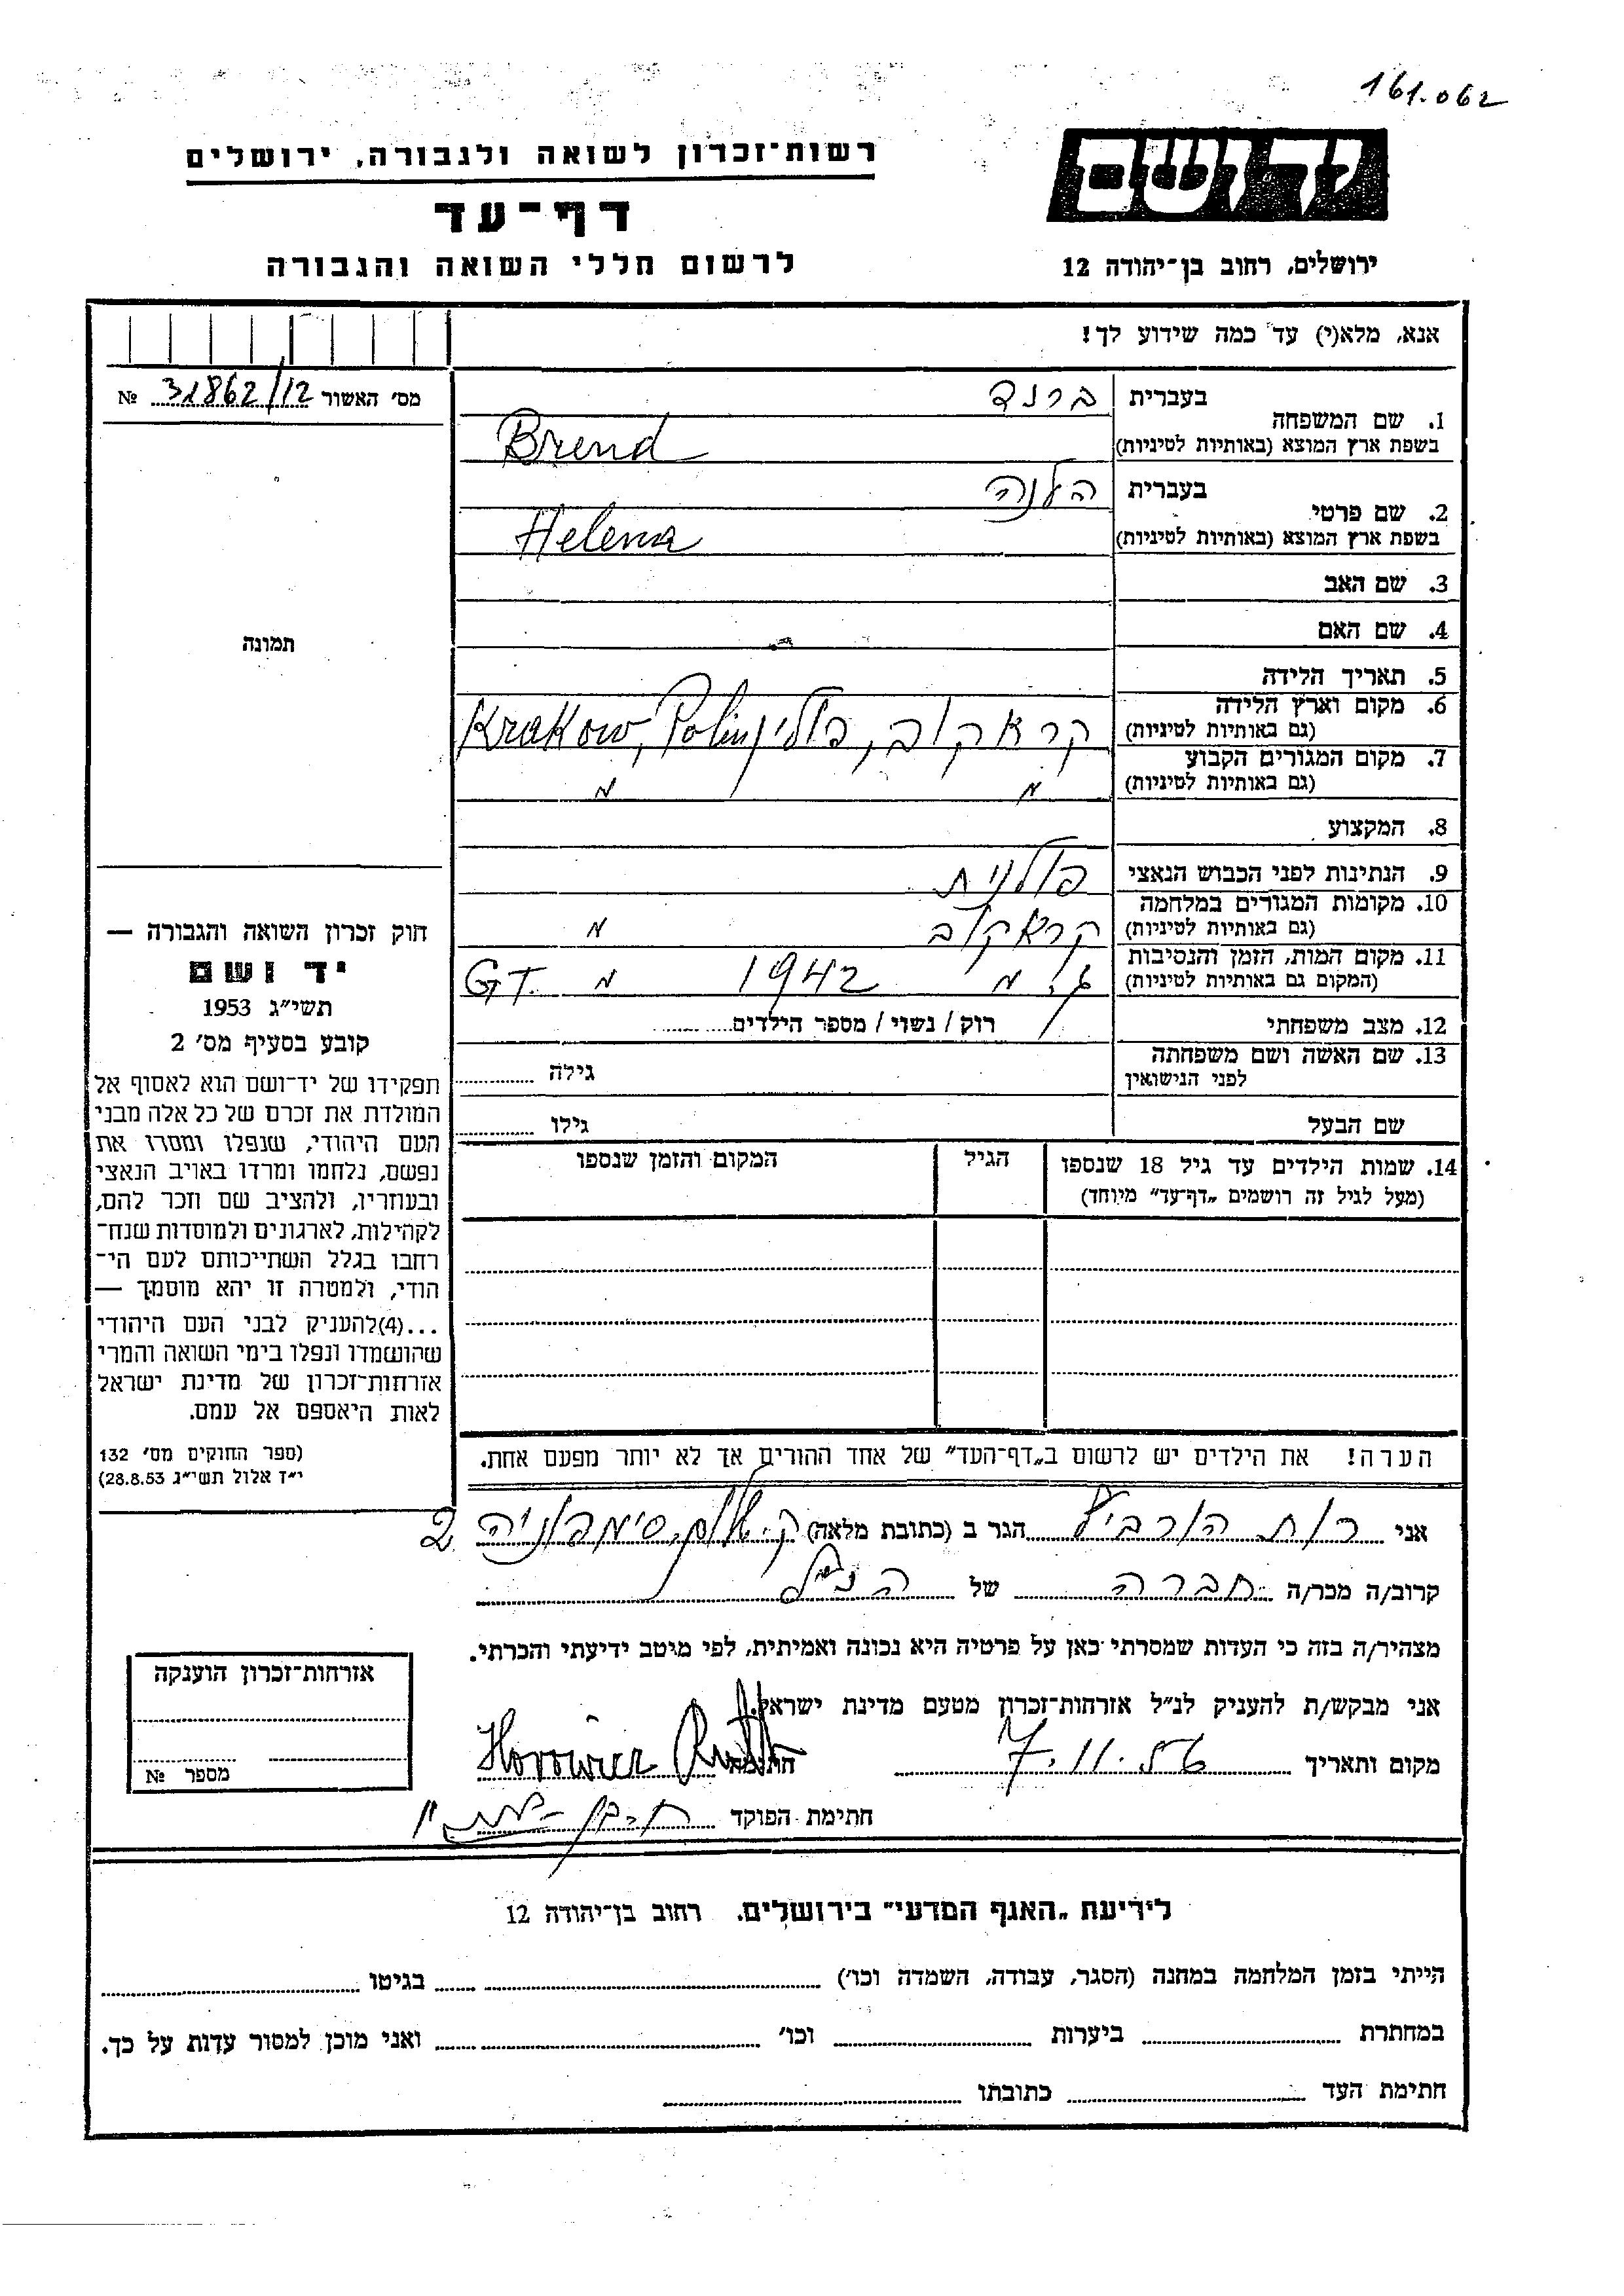 161.062
יד ושם
רשות־זכרון לשואה ולגבורה, ירושלים
דף־עד
לרשום חללי השואה והגבורה
ירושלים, רחוב בן־יהודה 12
אנא, מלא(י) עד כמה שידוע לך!
מס׳ האשור 31862/12 №
תמונה
1. שם המשפחה
בעברית ברנד
בשפת ארץ המוצא (באותיות לטיניות) Brend
2. שם פרטי
בעברית הלנה
בשפת ארץ המוצא (באותיות לטיניות) Helena
3. שם האב
4. שם האם
5. תאריך הלידה
6. מקום וארץ הלידה
(גם באותיות לטיניות) קראקוב, פולין Krakow, Polin
7. מקום המגורים הקבוע
(גם באותיות לטיניות) " "
8. המקצוע
9. הנתינות לפני הכבוש הנאצי פולנית
10. מקומות המגורים במלחמה
(גם באותיות לטיניות) קראקוב "
11. מקום המות, הזמן והנסיבות
(המקום גם באותיות לטיניות) ג. " 1942 " GT.
12. מצב משפחתי רוק / נשוי / מספר הילדים
13. שם האשה ושם משפחתה
לפני הנישואין גילה
שם הבעל גילו
14. שמות הילדים עד גיל 18 שנספו
(מעל לגיל זה רושמים „דף־עד״ מיוחד)
הגיל
המקום והזמן שנספו
חוק זכרון השואה והגבורה —
יד ושם
תשי״ג 1953
קובע בסעיף מס׳ 2
תפקידו של יד־ושם הוא לאסוף אל
המולדת את זכרם של כל אלה מבני
העם היהודי, שנפלו ומסרו את
נפשם, נלחמו ומרדו באויב הנאצי
ובעוזריו, ולהציב שם וזכר להם,
לקהילות, לארגונים ולמוסדות שנח־
רחבו בגלל השתייכותם לעם הי־
הודי, ולמטרה זו יהא מוסמך —
...(4)להעניק לבני העם היהודי
שהושמדו ונפלו בימי השואה והמרי
אזרחות־זכרון של מדינת ישראל
לאות היאספם אל עמם.
(ספר החוקים מס׳ 132
י״ד אלול תשי״ג 28.8.53)
הערה! את הילדים יש לרשום ב„דף־העד״ של אחד ההורים אך לא יותר מפעם אחת.
אני רות הורביץ הגר ב (כתובת מלאה) 2
קרוב/ה מכר/ה חברה של הנ״ל
מצהיר/ה בזה כי העדות שמסרתי כאן על פרטיה היא נכונה ואמיתית, לפי מיטב ידיעתי והכרתי.
אני מבקש/ת להעניק לנ״ל אזרחות־זכרון מטעם מדינת ישראל.
מקום ותאריך 7.11. חתימה Ruth
חתימת הפוקד
אזרחות־זכרון הוענקה
מספר №
לידיעת „האגף המדעי״ בירושלים. רחוב בן־יהודה 12
הייתי בזמן המלחמה במחנה (הסגר, עבודה, השמדה וכו׳) בגיטו
במחתרת ביערות וכו׳ ואני מוכן למסור עדות על כך.
חתימת העד כתובתו